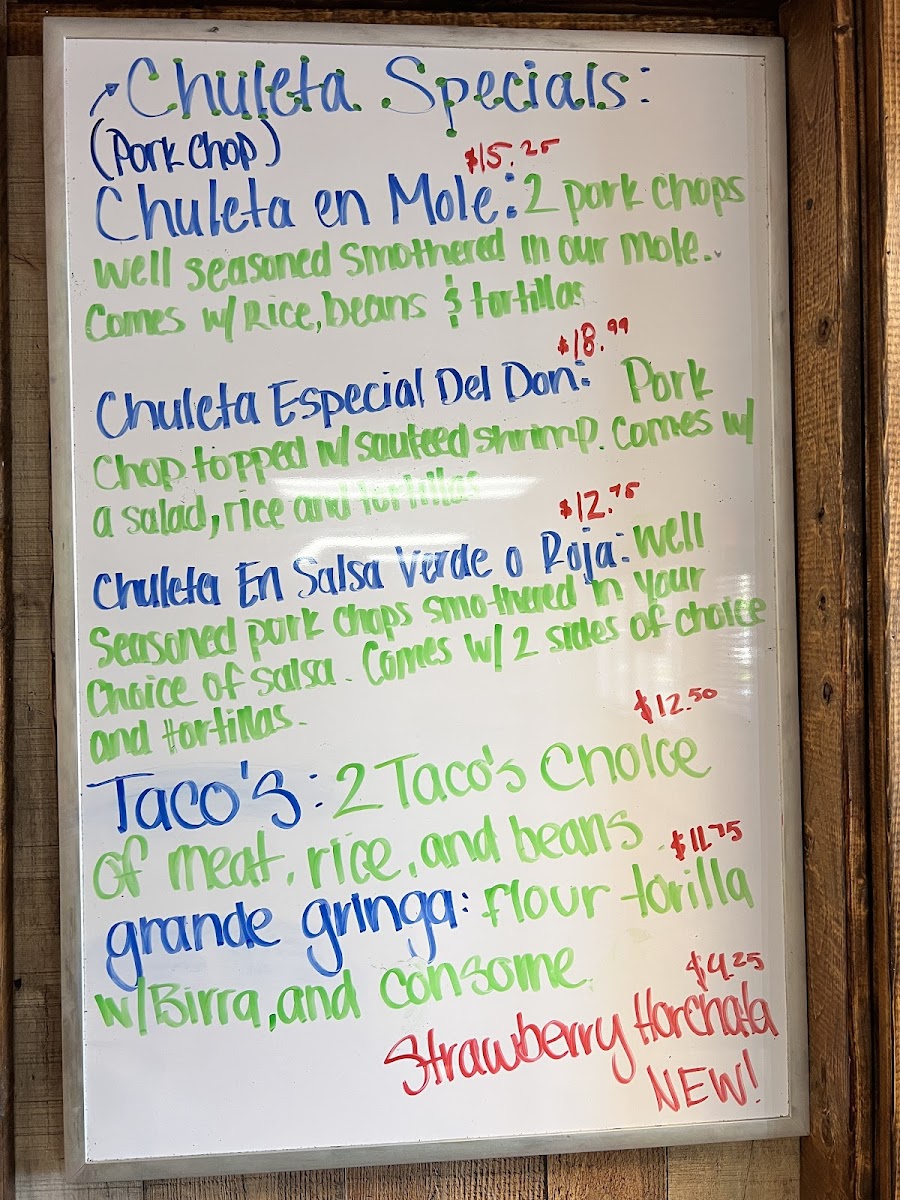 Chuleta Specials:
(Pork Chop)
$15.25
Chuleta en Mole: 2 pork chops
well seasoned smothered in our mole.
Comes w/ Rice, beans & tortillas
$18.99
Chuleta Especial Del Don: Pork
Chop topped w/ sauteed shrimp. Comes w/
a salad, rice and tortillas
$12.75
Chuleta En Salsa Verde o Roja: Well
Seasoned pork chops smothered in your
Choice of salsa. Comes w/ 2 sides of choice
and tortillas.
$12.50
Taco's: 2 Taco's Choice
of meat, rice, and beans.
$11.75
grande gringa: flour torilla
w/Birra, and consome.
$4.25
Strawberry Horchata
NEW!